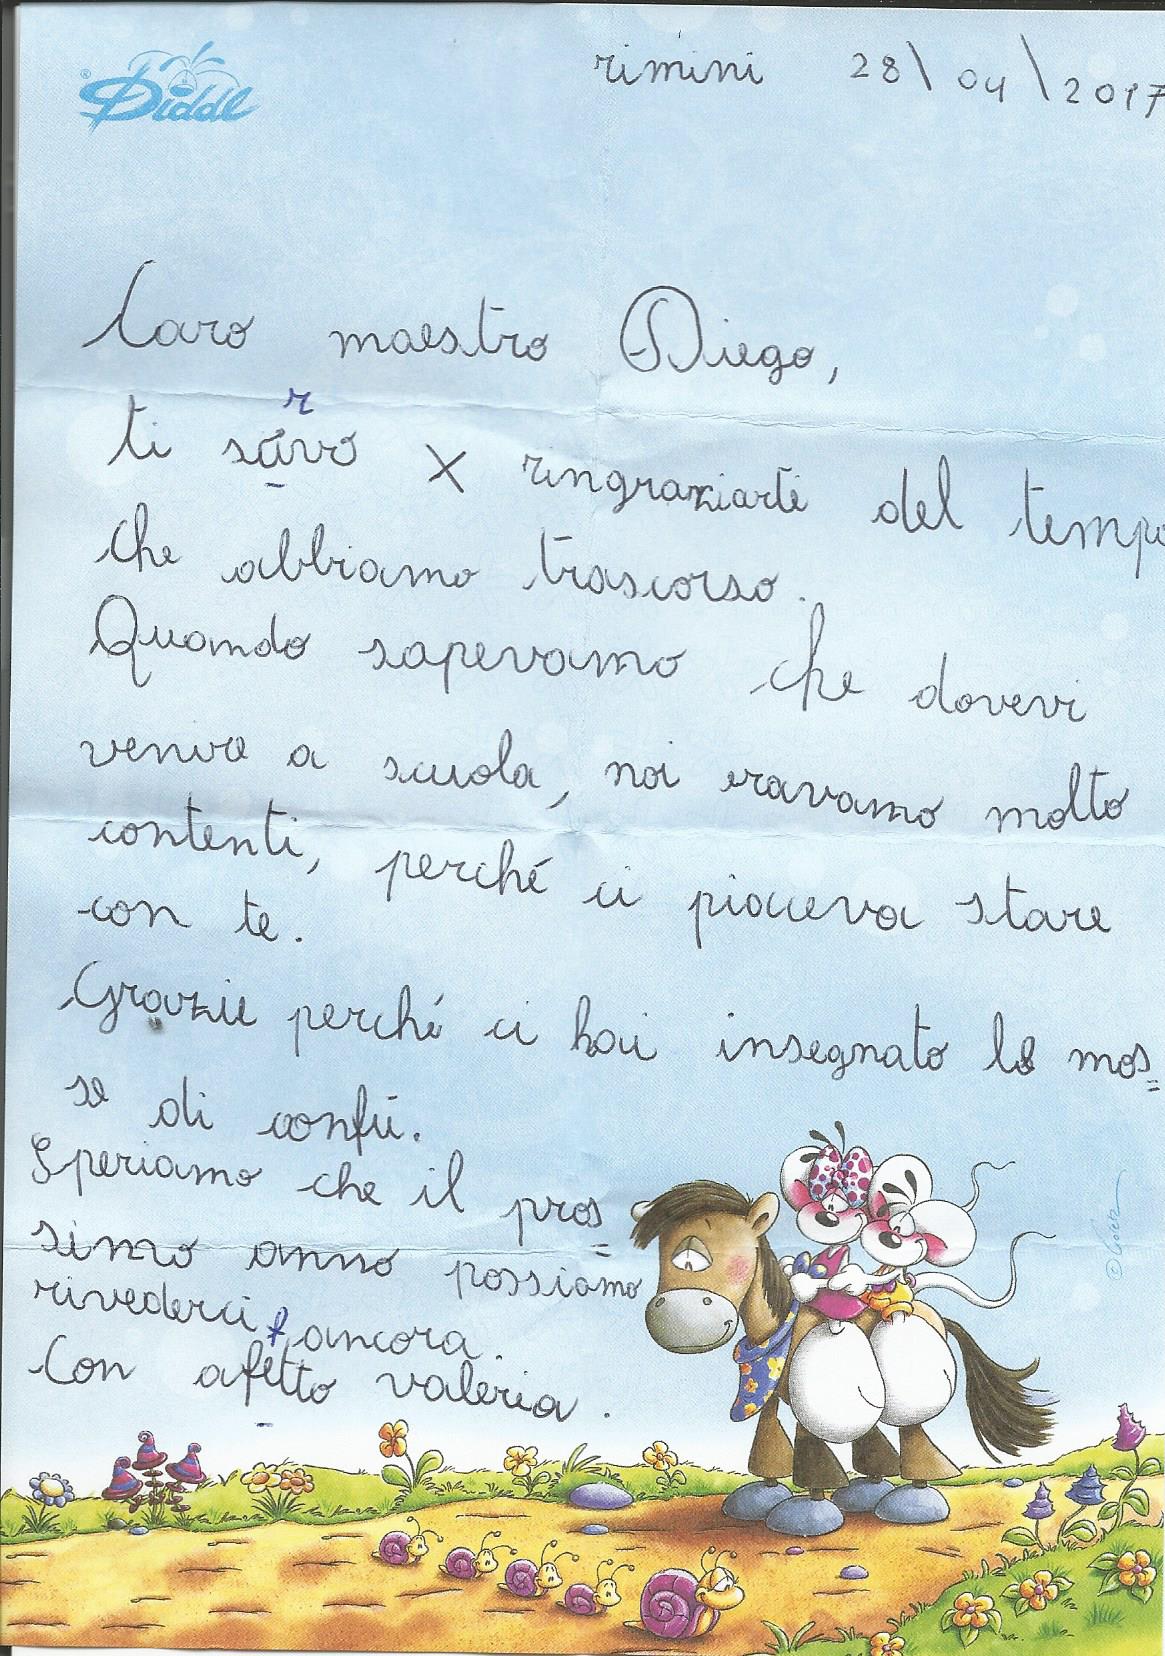 Diddl
rimini 28\04\2017
Caro maestro Diego,
r
ti savo x ringraziarti del tempo
che abbiamo trascorso.
Quando sapevamo che dovevi
venire a scuola, noi eravamo molto
contenti, perché ci piaceva stare
con te.
Grazie perché ci hai insegnato le mos=
se di confú.
Speriamo che il pros=
simo anno possiamo
rivederci ancora.
f
Con afetto valeria.
© Goletz